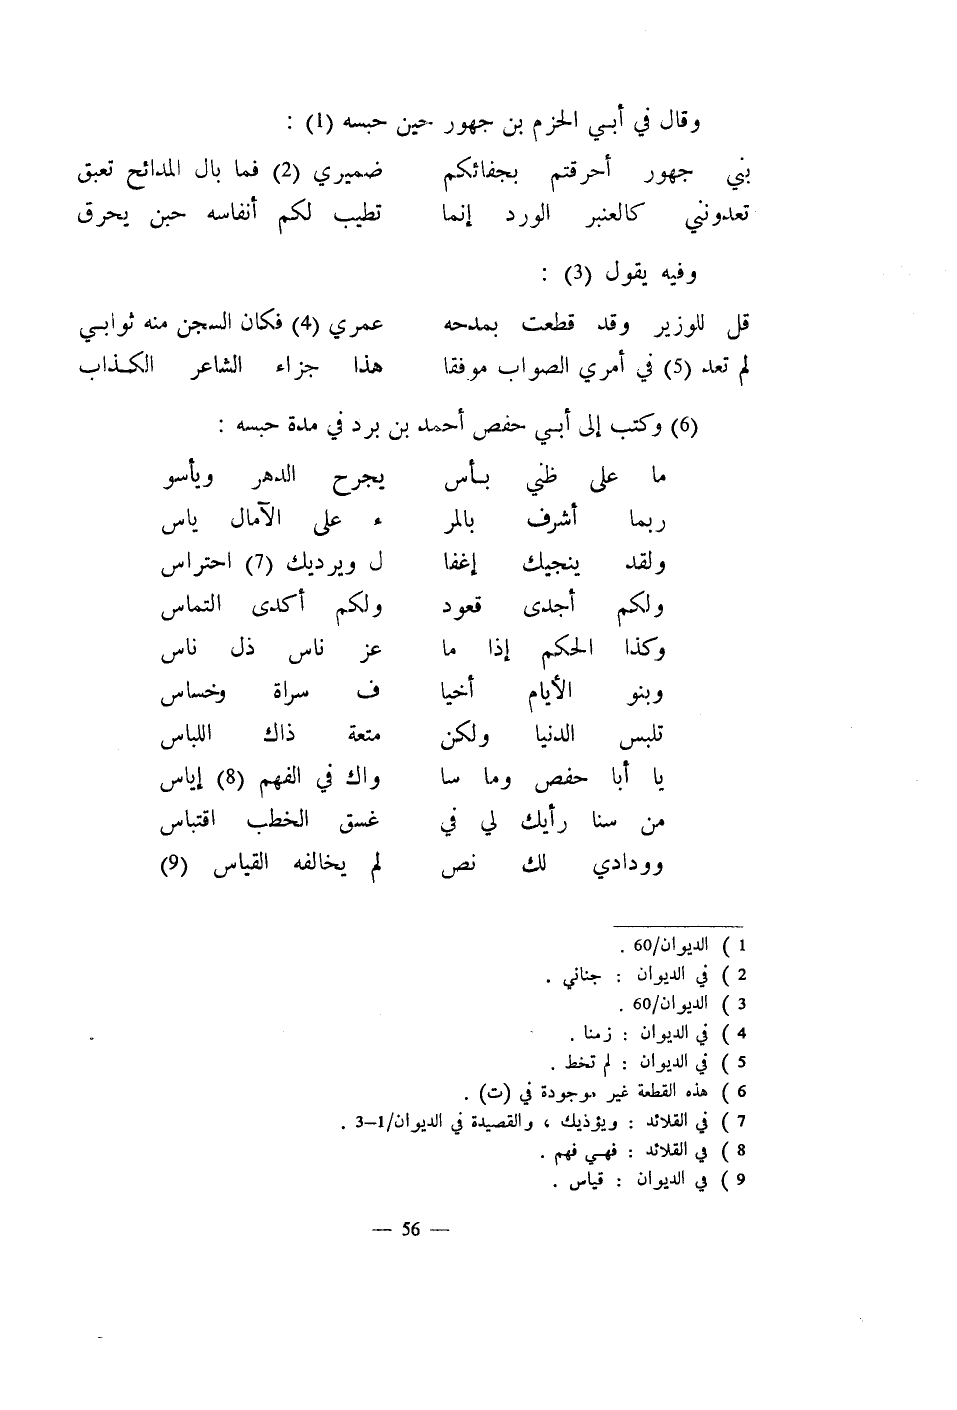 وقال في أبي الحزم بن جهور حين حبسه (1) :
بني جهور أحرقتم بجفائكم ضميري (2) فما بال المدائح تعبق
تعدونني كالعنبر الورد إنما تطيب لكم أنفاسه حين يحرق
وفيه يقول (3) :
قل للوزير وقد قطعت بمدحه عمري (4) فكان السجن منه ثوابي
لم تعد (5) في أمري الصواب موفقا هذا جزاء الشاعر الكذاب
(6) وكتب إلى أبي حفص أحمد بن برد في مدة حبسه :
ما على ظني بأس يجرح الدهر ويأسو
ربما أشرف بالمر ء على الآمال ياس
ولقد ينجيك إغفا ل ويرديك (7) احتراس
ولكم أجدى قعود ولكم أكدى التماس
وكذا الحكم إذا ما عز ناس ذل ناس
وبنو الأيام أخيا ف سراة وخساس
تلبس الدنيا ولكن متعة ذاك اللباس
يا أبا حفص وما سا واك في الفهم (8) إياس
من سنا رأيك لي في غسق الخطب اقتباس
وودادي لك نص لم يخالفه القياس (9)
1 ) الديوان/60 .
2 ) في الديوان : جناني .
3 ) الديوان/60 .
4 ) في الديوان : زمنا .
5 ) في الديوان : لم تخط .
6 ) هذه القطعة غير موجودة في (ت) .
7 ) في القلائد : ويؤذيك ، والقصيدة في الديوان/1–3 .
8 ) في القلائد : فهي فهم .
9 ) في الديوان : قياس .
— 56 —